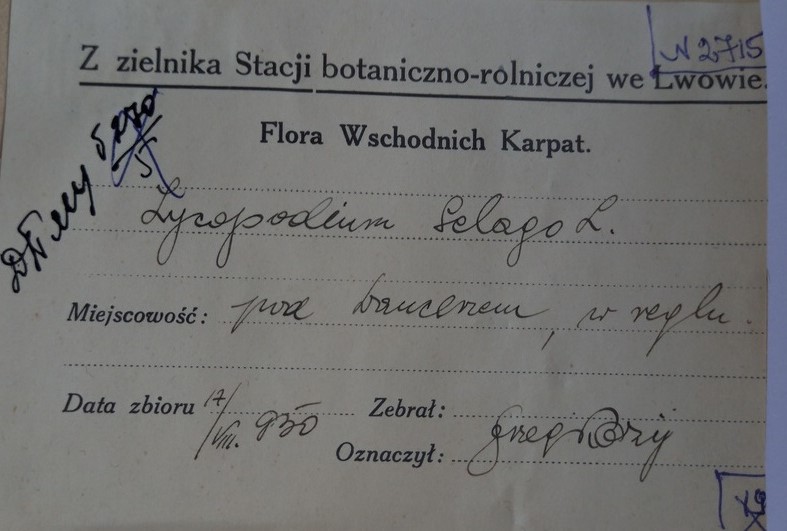 N 2715
Z zielnika Stacji botaniczno-rolniczej we Lwowie.
Flora Wschodnich Karpat.
Lycopodium Selago L.
Miejscowość: pod Dancerzem, w reglu.
Data zbioru 17/VIII. 930 Zebrał:
Oznaczył: